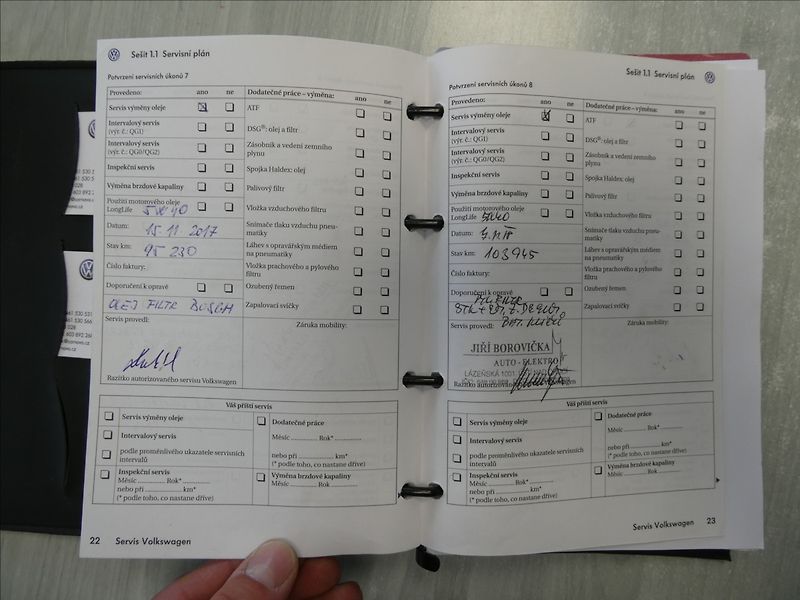 Sešit 1.1 Servisní plán
Potvrzení servisních úkonů 7
Provedeno: ano ne
Servis výměny oleje
Intervalový servis
(výr. č.: QG1)
Intervalový servis
(výr. č.: QG0/QG2)
Inspekční servis
Výměna brzdové kapaliny
Použití motorového oleje
LongLife 5W40
Datum: 15.11.2017
Stav km: 95 230
Číslo faktury:
Doporučení k opravě
OLEJ FILTR BOSCH
Servis provedl:
Razítko autorizovaného servisu Volkswagen
Dodatečné práce – výměna: ano ne
ATF
DSG®: olej a filtr
Zásobník a vedení zemního
plynu
Spojka Haldex: olej
Palivový filtr
Vložka vzduchového filtru
Snímače tlaku vzduchu pneu-
matiky
Láhev s opravářským médiem
na pneumatiky
Vložka prachového a pylového
filtru
Ozubený řemen
Zapalovací svíčky
Záruka mobility:
Váš příští servis
Servis výměny oleje
Intervalový servis
podle proměnlivého ukazatele servisních
intervalů
Inspekční servis
Měsíc Rok*
nebo při km*
(* podle toho, co nastane dříve)
Dodatečné práce
Měsíc Rok*
nebo při km*
(* podle toho, co nastane dříve)
Výměna brzdové kapaliny
Měsíc Rok
22 Servis Volkswagen
Sešit 1.1 Servisní plán
Potvrzení servisních úkonů 8
Provedeno: ano ne
Servis výměny oleje
Intervalový servis
(výr. č.: QG1)
Intervalový servis
(výr. č.: QG0/QG2)
Inspekční servis
Výměna brzdové kapaliny
Použití motorového oleje
LongLife 5W40
Datum:
Stav km: 103945
Číslo faktury:
Doporučení k opravě
Servis provedl:
JIŘÍ BOROVIČKA
AUTO - ELEKTRO
LÁZEŇSKÁ 1001
Razítko autorizovaného
Dodatečné práce – výměna: ano ne
ATF
DSG®: olej a filtr
Zásobník a vedení zemního
plynu
Spojka Haldex: olej
Palivový filtr
Vložka vzduchového filtru
Snímače tlaku vzduchu pneu-
matiky
Láhev s opravářským médiem
na pneumatiky
Vložka prachového a pylového
filtru
Ozubený řemen
Zapalovací svíčky
Záruka mobility:
Váš příští servis
Servis výměny oleje
Intervalový servis
podle proměnlivého ukazatele servisních
intervalů
Inspekční servis
Měsíc Rok*
nebo při km*
(* podle toho, co nastane dříve)
Dodatečné práce
Měsíc Rok*
nebo při km*
(* podle toho, co nastane dříve)
Výměna brzdové kapaliny
Měsíc Rok
Servis Volkswagen 23